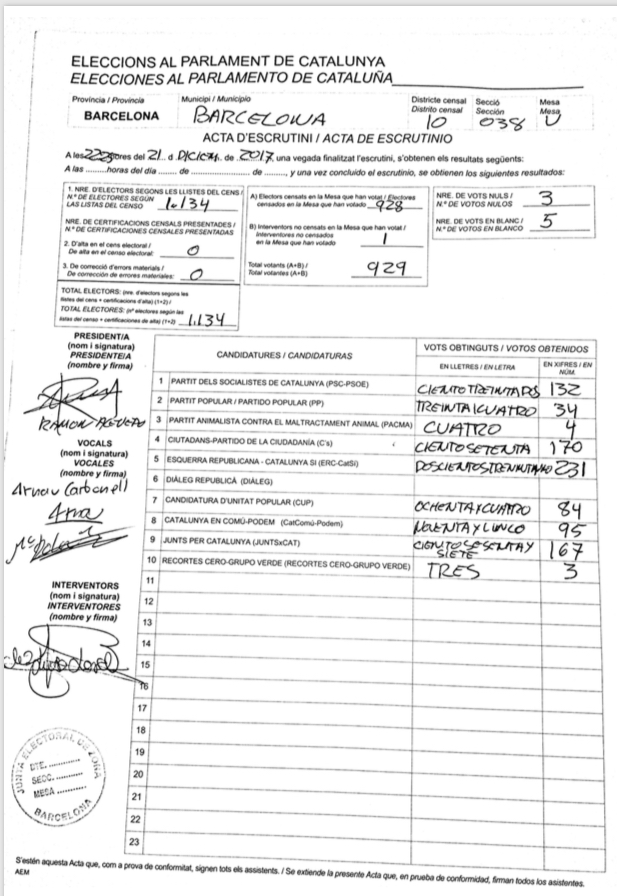 ELECCIONS AL PARLAMENT DE CATALUNYA
ELECCIONES AL PARLAMENTO DE CATALUÑA
Província / Provincia Municipi / Municipio Districte censal Secció Mesa
Distrito censal Sección Mesa
BARCELONA BARCELONA 10 038 U
ACTA D'ESCRUTINI / ACTA DE ESCRUTINIO
A les hores del 21 d de 2017, una vegada finalitzat l'escrutini, s'obtenen els resultats següents:
A las horas del día de de , y una vez concluido el escrutinio, se obtienen los siguientes resultados:
1. NRE. D'ELECTORS SEGONS LES LLISTES DEL CENS /
N.º DE ELECTORES SEGÚN
LAS LISTAS DEL CENSO 1.134
NRE. DE CERTIFICACIONS CENSALS PRESENTADES /
N.º DE CERTIFICACIONES CENSALES PRESENTADAS
2. D'alta en el cens electoral /
De alta en el censo electoral: 0
3. De correcció d'errors materials /
De corrección de errores materiales: 0
TOTAL ELECTORS: (nre. d'electors segons les
llistes del cens + certificacions d'alta) (1+2) /
TOTAL ELECTORES: (nº electores según las
listas del censo + certificaciones de alta) (1+2) 1.134
A) Electors censats en la Mesa que han votat / Electores
censados en la Mesa que han votado 928
B) Interventors no censats en la Mesa que han votat /
Interventores no censados
en la Mesa que han votado 1
Total votants (A+B) /
Total votantes (A+B) 929
NRE. DE VOTS NULS /
N.º DE VOTOS NULOS 3
NRE. DE VOTS EN BLANC /
N.º DE VOTOS EN BLANCO 5
PRESIDENT/A
(nom i signatura)
PRESIDENTE/A
(nombre y firma)
RAMON
VOCALS
(nom i signatura)
VOCALES
(nombre y firma)
Arnau Carbonell
INTERVENTORS
(nom i signatura)
INTERVENTORES
(nombre y firma)
JUNTA ELECTORAL DE ZONA
DTE.
SECC.
MESA
BARCELONA
CANDIDATURES / CANDIDATURAS VOTS OBTINGUTS / VOTOS OBTENIDOS
EN LLETRES / EN LETRA EN XIFRES / EN NÚM.
1 PARTIT DELS SOCIALISTES DE CATALUNYA (PSC-PSOE) CIENTO TREINTA DOS 132
2 PARTIT POPULAR / PARTIDO POPULAR (PP) TREINTA CUATRO 34
3 PARTIT ANIMALISTA CONTRA EL MALTRACTAMENT ANIMAL (PACMA) CUATRO 4
4 CIUTADANS-PARTIDO DE LA CIUDADANÍA (C's) CIENTO SETENTA 170
5 ESQUERRA REPUBLICANA - CATALUNYA SÍ (ERC-CatSí) 231
6 DIÀLEG REPUBLICÀ (DIÀLEG)
7 CANDIDATURA D'UNITAT POPULAR (CUP) OCHENTA Y CUATRO 84
8 CATALUNYA EN COMÚ-PODEM (CatComú-Podem) NOVENTA Y CINCO 95
9 JUNTS PER CATALUNYA (JUNTSxCAT) CIENTO SESENTA Y SIETE 167
10 RECORTES CERO-GRUPO VERDE (RECORTES CERO-GRUPO VERDE) TRES 3
11
12
13
14
15
16
17
18
19
20
21
22
23
S'estén aquesta Acta que, com a prova de conformitat, signen tots els assistents. / Se extiende la presente Acta que, en prueba de conformidad, firman todos los asistentes.
AEM